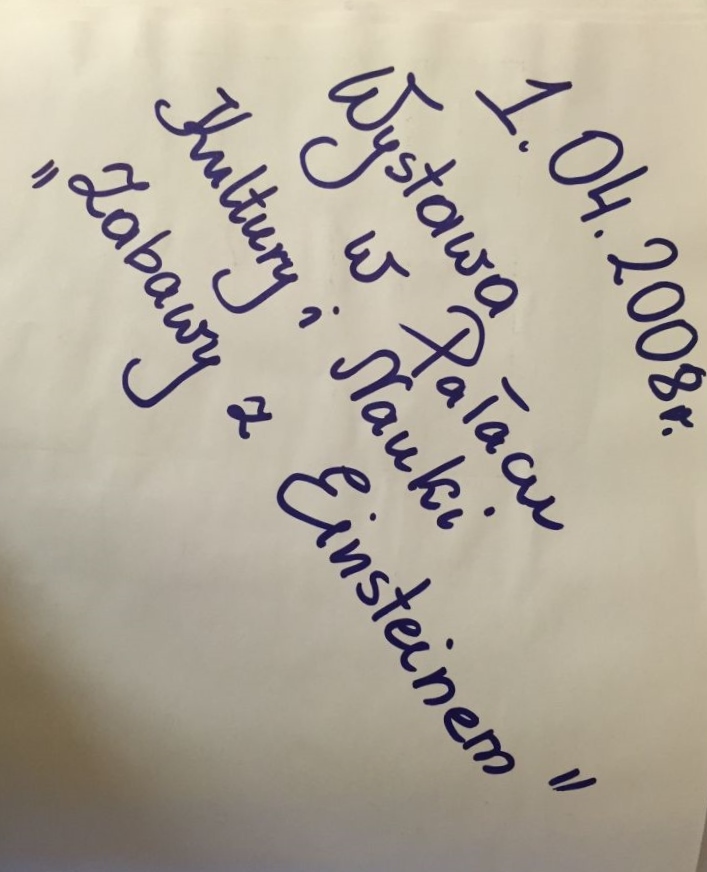 1.04.2008r.
Wystawa
w Pałacu
Kultury i Nauki
„Zabawy z Einsteinem"